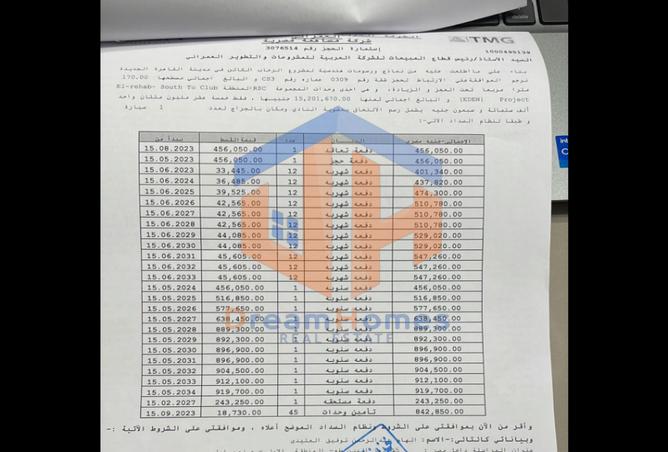 الشركة العربية
شركة مساهمة مصرية
إستمارة الحجز رقم 3076514
TMG
1000499139
السيد الاستاذ/رئيس قطاع المبيعات للشركة العربية للمشروعات والتطوير العمراني
بناء على ما اطلعت عليه من نماذج ورسومات هندسية لمشروع الرحاب الكائن في مدينة القاهرة الجديدة
نرجو الموافقة على الارتباط لحجز شقة رقم 0309 عماره رقم CS3 و البالغ اجمالي مسطحها 170.00
مترا مربعا تحت العجز و الزيادة، و هي احدى وحدات المجموعة RSC المنطقة El-rehab- South To Club
Project (EDEN) و البالغ اجمالي ثمنها 15,201,670.00 جنيها، فقط خمسة عشر مليون مئتان واحد
ألف ستمائة و سبعون جنيه يشمل رسم الالتحاق بعضوية النادي ومكان بالجراج لعدد 1 سيارة
و طبقا لنظام السداد الآتي:-
الاجمالي-جنيه مصري البيــــان عدد قيمة القسط يبدأ من
456,050.00 دفعة تعاقد 1 456,050.00 15.08.2023
456,050.00 دفعة حجز 1 456,050.00 15.05.2023
401,340.00 دفعه شهريه 12 33,445.00 15.06.2023
437,820.00 دفعه شهريه 12 36,485.00 15.06.2024
474,300.00 دفعه شهريه 12 39,525.00 15.06.2025
510,780.00 دفعه شهريه 12 42,565.00 15.06.2026
510,780.00 دفعه شهريه 12 42,565.00 15.06.2027
510,780.00 دفعه شهريه 12 42,565.00 15.06.2028
529,020.00 دفعه شهريه 12 44,085.00 15.06.2029
529,020.00 دفعه شهريه 12 44,085.00 15.06.2030
547,260.00 دفعه شهريه 12 45,605.00 15.06.2031
547,260.00 دفعه شهريه 12 45,605.00 15.06.2032
547,260.00 دفعه شهريه 12 45,605.00 15.06.2033
456,050.00 دفعه سنويه 1 456,050.00 15.05.2024
516,850.00 دفعه سنويه 1 516,850.00 15.05.2025
577,650.00 دفعه سنويه 1 577,650.00 15.05.2026
638,450.00 دفعه سنويه 1 638,450.00 15.05.2027
889,300.00 دفعه سنويه 1 889,300.00 15.05.2028
892,300.00 دفعه سنويه 1 892,300.00 15.05.2029
896,900.00 دفعه سنويه 1 896,900.00 15.05.2030
896,900.00 دفعه سنويه 1 896,900.00 15.05.2031
904,500.00 دفعه سنويه 1 904,500.00 15.05.2032
912,100.00 دفعه سنويه 1 912,100.00 15.05.2033
919,700.00 دفعه سنويه 1 919,700.00 15.05.2034
243,250.00 دفعة مستحقه 1 243,250.00 15.02.2027
842,850.00 تأمين وحدات 45 18,730.00 15.09.2023
Dream Homes
REAL ESTATE
وأقر من الآن بموافقتى على الشروط ونظام السداد الموضح أعلاه ، وموافقتى على الشروط الآتية :-
وبياناتي كالتالي:-الاسم: